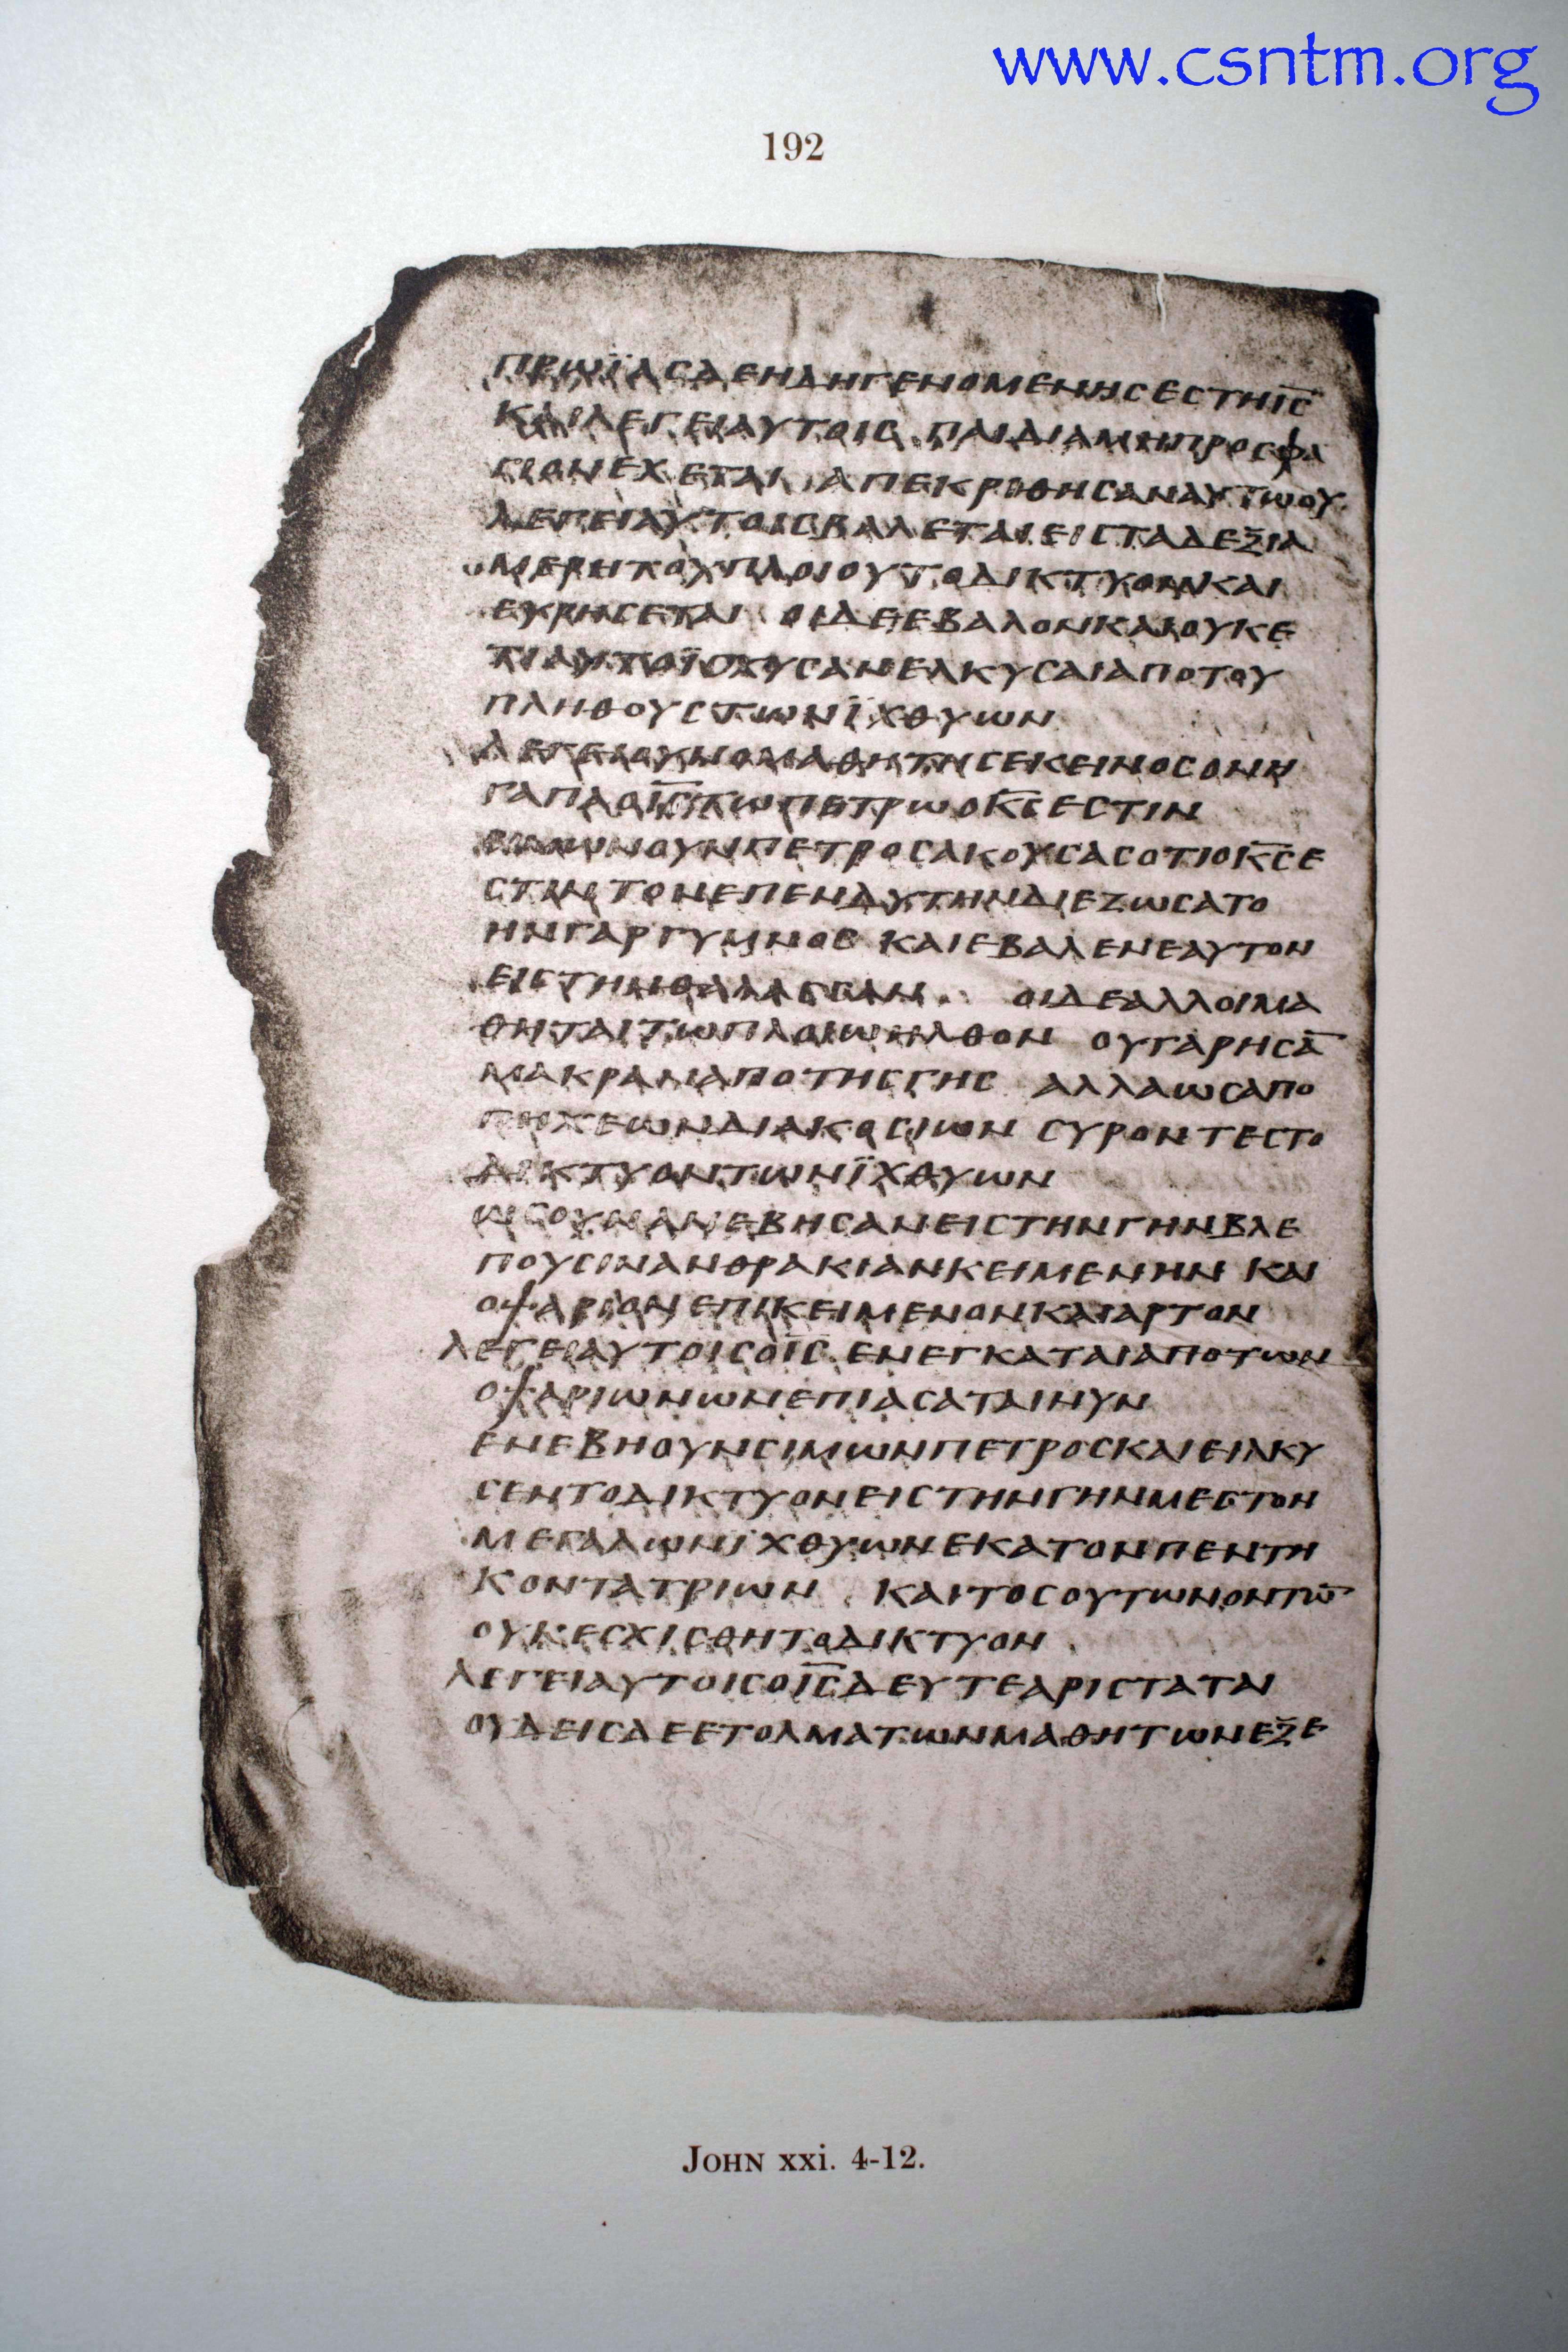 www.csntm.org
192
ΠΡΩΪΑΣΔΕΗΔΗΓΕΝΟΜΕΝΗΣΕΣΤΗΙ̅Σ̅
ΚΑΙΛΕΓΕΙΑΥΤΟΙΣ ΠΑΙΔΙΑΜΗΠΡΟΣΦΑ
ΓΙΟΝΕΧΕΤΑΙ ΑΠΕΚΡΙΘΗΣΑΝΑΥΤΩΟΥ
ΛΕΓΕΙΑΥΤΟΙΣΒΑΛΕΤΑΙΕΙΣΤΑΔΕΞΙΑ
ΜΕΡΗΤΟΥΠΛΟΙΟΥΤΟΔΙΚΤΥΟΝΚΑΙ
ΕΥΡΗΣΕΤΑΙ ΟΙΔΕΕΒΑΛΟΝΚΑΙΟΥΚΕ
ΤΙΑΥΤΟΪΣΧΥΣΑΝΕΛΚΥΣΑΙΑΠΟΤΟΥ
ΠΛΗΘΟΥΣΤΩΝΪΧΘΥΩΝ
ΛΕΓΕΙΟΥΝΟΜΑΘΗΤΗΣΕΚΕΙΝΟΣΟΝΗ
ΓΑΠΑΟΙ̅Σ̅ΤΩΠΕΤΡΩΟΚ̅Σ̅ΕΣΤΙΝ
ΣΙΜΩΝΟΥΝΠΕΤΡΟΣΑΚΟΥΣΑΣΟΤΙΟΚ̅Σ̅Ε
ΣΤΙΝ ΤΟΝΕΠΕΝΔΥΤΗΝΔΙΕΖΩΣΑΤΟ
ΗΝΓΑΡΓΥΜΝΟΣ ΚΑΙΕΒΑΛΕΝΕΑΥΤΟΝ
ΕΙΣΤΗΝΘΑΛΑΣΣΑΝ ΟΙΔΕΑΛΛΟΙΜΑ
ΘΗΤΑΙΤΩΠΛΟΙΩΗΛΘΟΝ ΟΥΓΑΡΗΣΑ̅
ΜΑΚΡΑΝΑΠΟΤΗΣΓΗΣ ΑΛΛΑΩΣΑΠΟ
ΠΗΧΕΩΝΔΙΑΚΟΣΙΩΝ ΣΥΡΟΝΤΕΣΤΟ
ΔΙΚΤΥΟΝΤΩΝΪΧΘΥΩΝ
ΩΣΟΥΝΑΝΕΒΗΣΑΝΕΙΣΤΗΝΓΗΝΒΛΕ
ΠΟΥΣΙΝΑΝΘΡΑΚΙΑΝΚΕΙΜΕΝΗΝ ΚΑΙ
ΟΨΑΡΙΟΝΕΠΙΚΕΙΜΕΝΟΝΚΑΙΑΡΤΟΝ
ΛΕΓΕΙΑΥΤΟΙΣΟΙ̅Σ̅ ΕΝΕΓΚΑΤΑΙΑΠΟΤΩΝ
ΟΨΑΡΙΩΝΩΝΕΠΙΑΣΑΤΑΙΝΥΝ
ΕΝΕΒΗΟΥΝΣΙΜΩΝΠΕΤΡΟΣΚΑΙΕΙΛΚΥ
ΣΕΝΤΟΔΙΚΤΥΟΝΕΙΣΤΗΝΓΗΝΜΕΣΤΟΝ
ΜΕΓΑΛΩΝΪΧΘΥΩΝΕΚΑΤΟΝΠΕΝΤΗ
ΚΟΝΤΑΤΡΙΩΝ ΚΑΙΤΟΣΟΥΤΩΝΟΝΤΩ̅
ΟΥΚΕΣΧΙΣΘΗΤΟΔΙΚΤΥΟΝ
ΛΕΓΕΙΑΥΤΟΙΣΟΙ̅Σ̅ΔΕΥΤΕΑΡΙΣΤΑΤΑΙ
ΟΥΔΕΙΣΔΕΕΤΟΛΜΑΤΩΝΜΑΘΗΤΩΝΕΞΕ
JOHN xxi. 4-12.